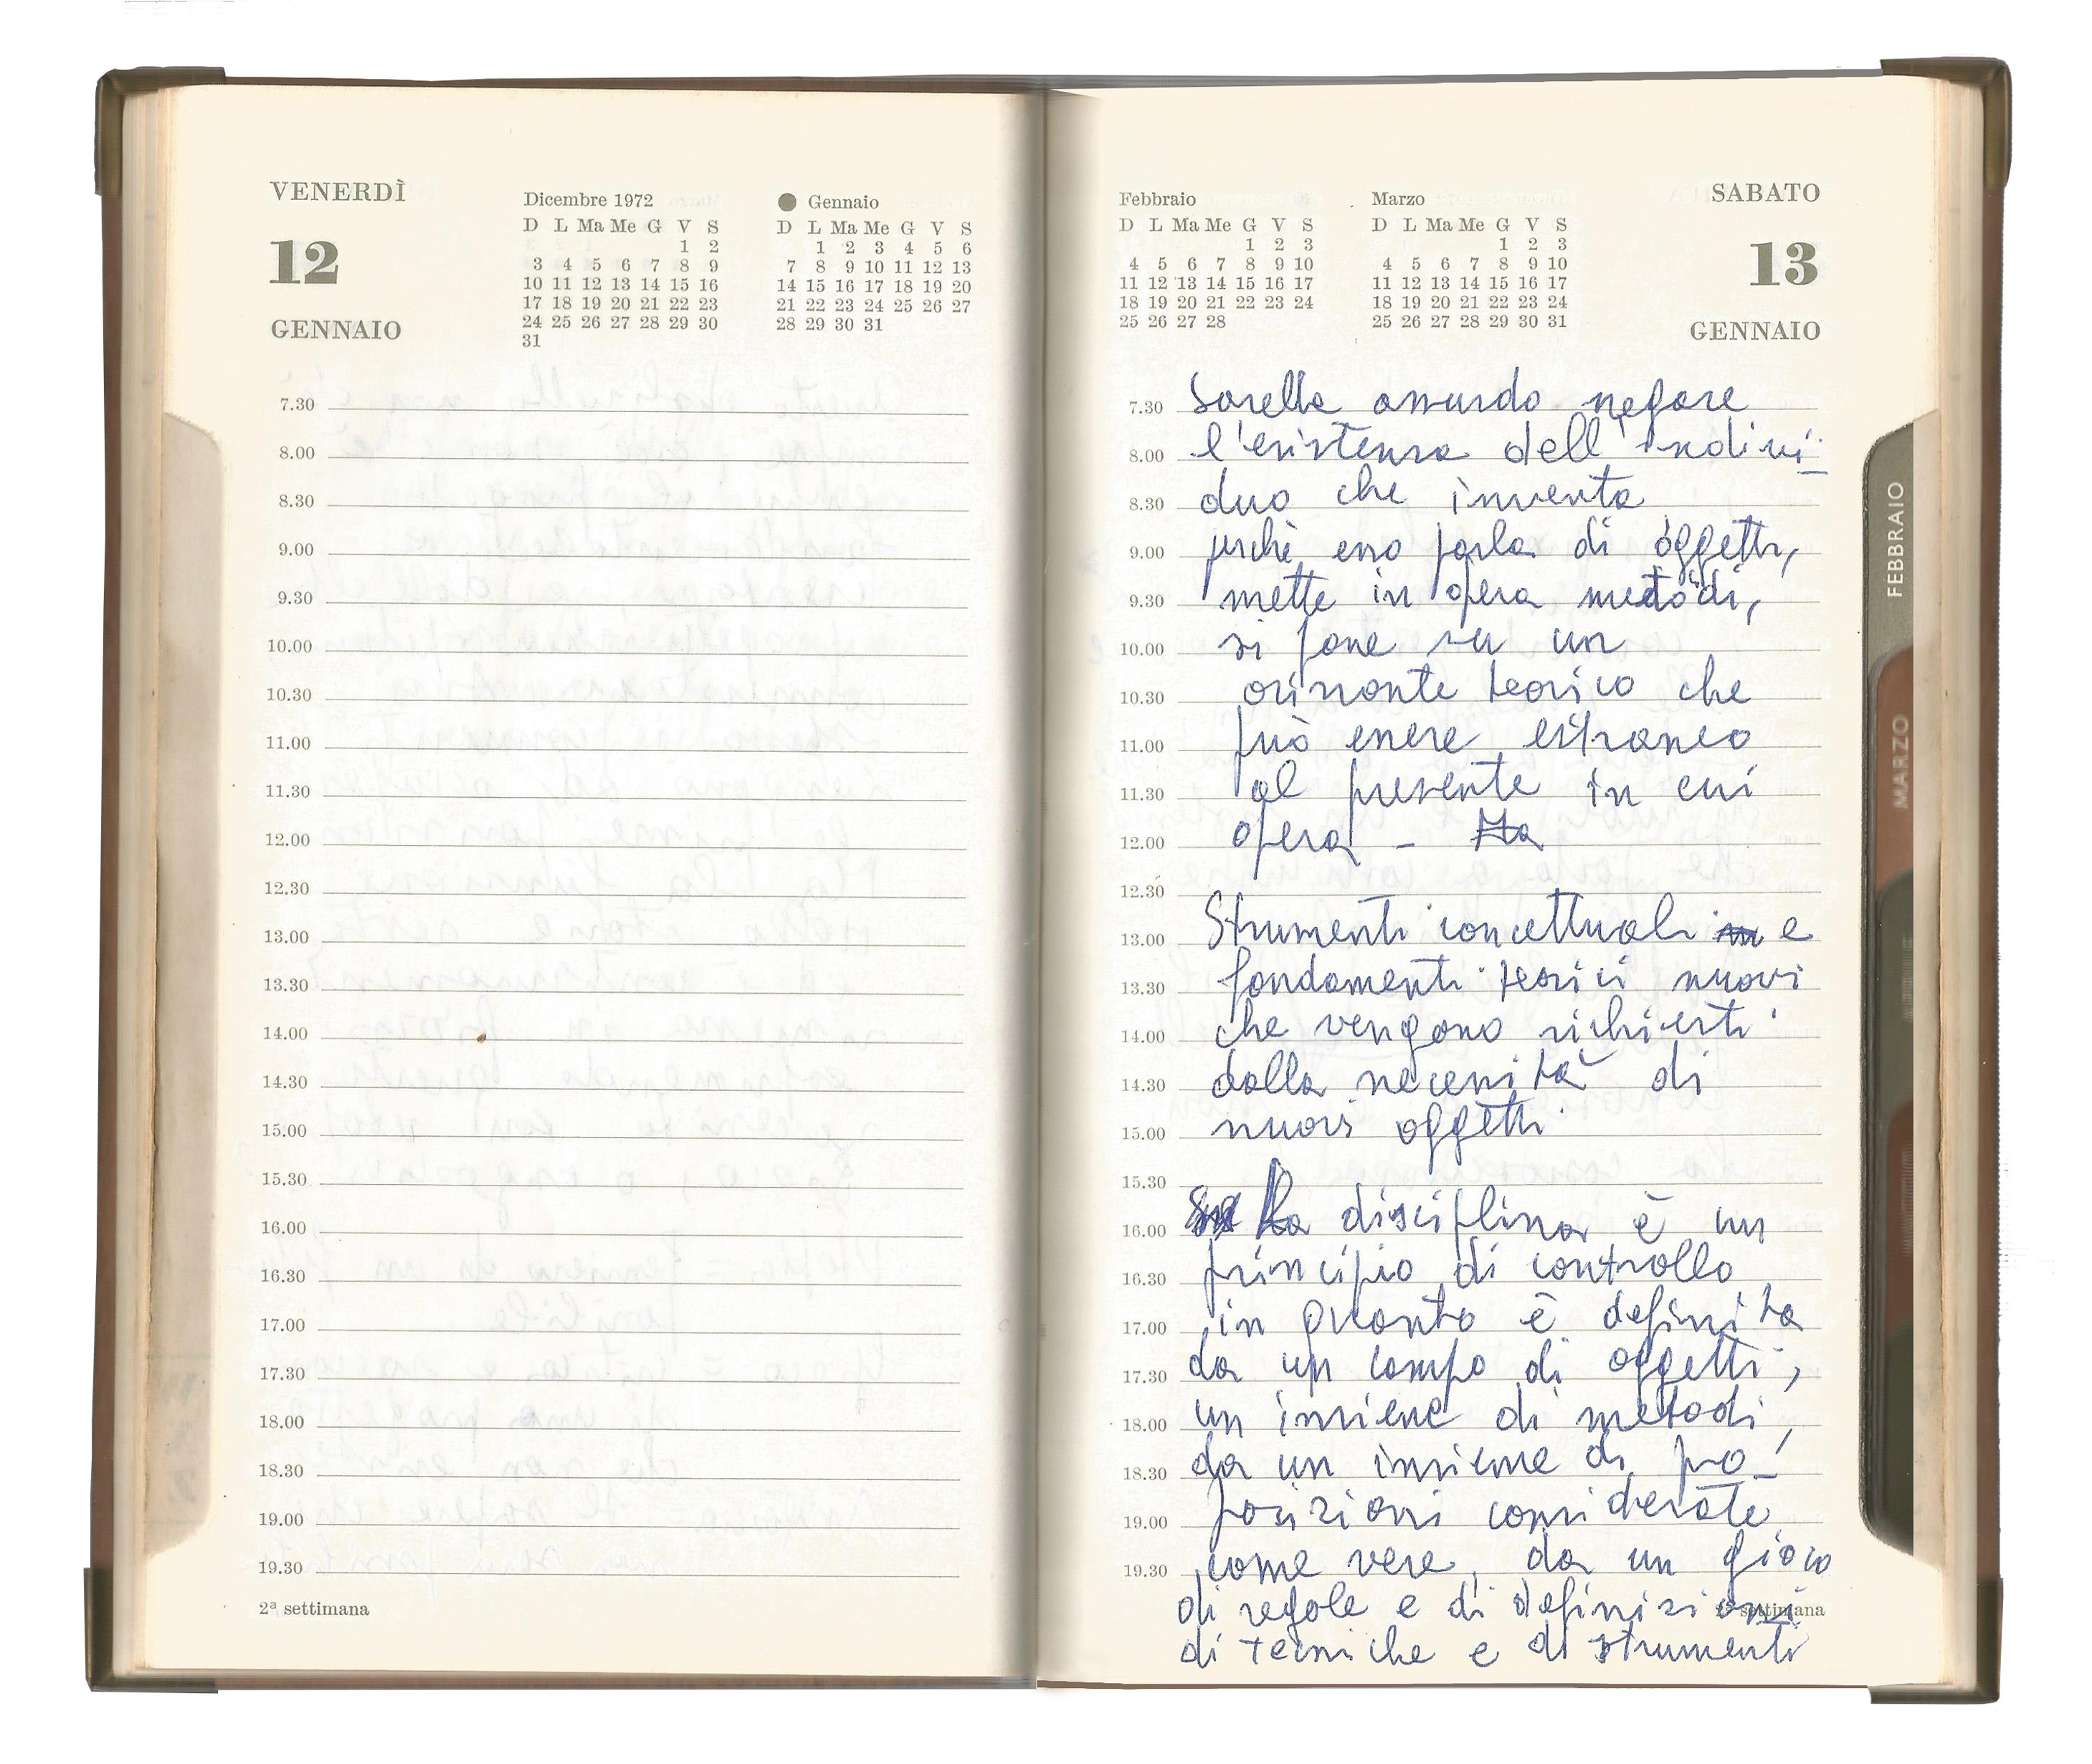 VENERDÌ
12
GENNAIO
Dicembre 1972
D L Ma Me G V S
1 2
3 4 5 6 7 8 9
10 11 12 13 14 15 16
17 18 19 20 21 22 23
24 25 26 27 28 29 30
31
Gennaio
D L Ma Me G V S
1 2 3 4 5 6
7 8 9 10 11 12 13
14 15 16 17 18 19 20
21 22 23 24 25 26 27
28 29 30 31
7.30
8.00
8.30
9.00
9.30
10.00
10.30
11.00
11.30
12.00
12.30
13.00
13.30
14.00
14.30
15.00
15.30
16.00
16.30
17.00
17.30
18.00
18.30
19.00
19.30
2ª settimana
Febbraio
D L Ma Me G V S
1 2 3
4 5 6 7 8 9 10
11 12 13 14 15 16 17
18 19 20 21 22 23 24
25 26 27 28
Marzo
D L Ma Me G V S
1 2 3
4 5 6 7 8 9 10
11 12 13 14 15 16 17
18 19 20 21 22 23 24
25 26 27 28 29 30 31
SABATO
13
GENNAIO
7.30 Sarebbe assurdo negare
8.00 l'esistenza dell'indivi-
8.30 duo che inventa
9.00 perchè esso parla di oggetti,
9.30 mette in opera metodi,
10.00 si pone su un
10.30 orizzonte teorico che
11.00 può essere estraneo
11.30 al presente in cui
12.00 opera - Ma
12.30
13.00 Strumenti concettuali e
13.30 fondamenti teorici nuovi
14.00 che vengono richiesti
14.30 dalla necessità di
15.00 nuovi oggetti
15.30
16.00 La disciplina è un
16.30 principio di controllo
17.00 in quanto è definita
17.30 da un campo di oggetti,
18.00 un insieme di metodi,
18.30 da un insieme di pro-
19.00 posizioni considerate
19.30 come vere, da un gioco
di regole e di definizioni
2ª settimana
di tecniche e di strumenti
FEBBRAIO
MARZO